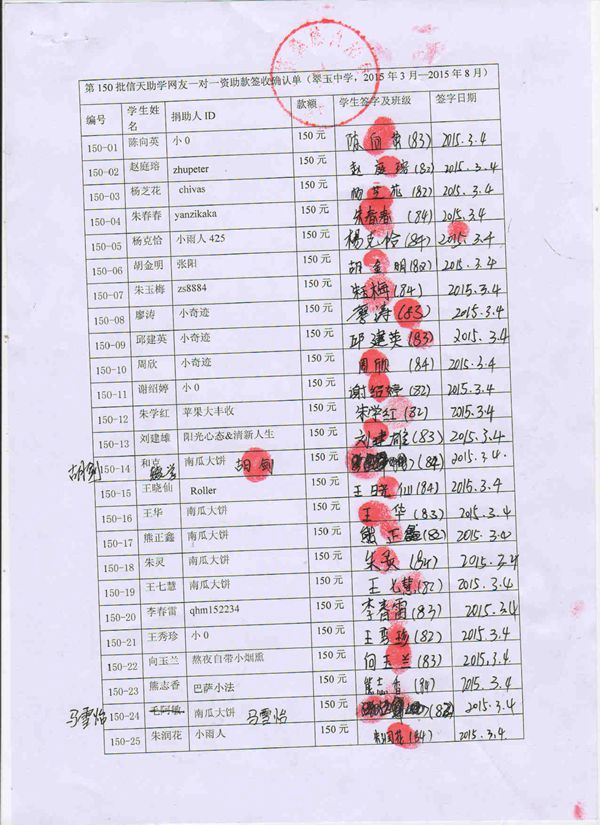 第150批信天助学网友一对一资助款签收确认单（翠玉中学，2015年3月—2015年8月）
编号 学生姓名 捐助人ID 款额 学生签字及班级 签字日期
150-01 陈向英 小0 150元 陈向英(83) 2015.3.4
150-02 赵庭瑢 zhupeter 150元 赵庭瑢(82) 2015.3.4
150-03 杨芝花 chivas 150元 杨芝花(82) 2015.3.4
150-04 朱春春 yanzikaka 150元 朱春春(84) 2015.3.4
150-05 杨克恰 小雨人425 150元 杨克恰(84) 2015.3.4
150-06 胡金明 张阳 150元 胡金明(82) 2015.3.4
150-07 朱玉梅 zs8884 150元 朱玉梅(84) 2015.3.4
150-08 廖涛 小奇迹 150元 廖涛(83) 2015.3.4
150-09 邱建英 小奇迹 150元 邱建英(83) 2015.3.4
150-10 周欣 小奇迹 150元 周欣(84) 2015.3.4
150-11 谢绍婷 小0 150元 谢绍婷(82) 2015.3.4
150-12 朱学红 苹果大丰收 150元 朱学红(82) 2015.3.4
150-13 刘建雄 阳光心态&清新人生 150元 刘建雄(83) 2015.3.4
胡剑 150-14 和克 南瓜大饼 胡剑 150元 (84) 2015.3.4
150-15 王晓仙 Roller 150元 王晓仙(84) 2015.3.4
150-16 王华 南瓜大饼 150元 王华(83) 2015.3.4
150-17 熊正鑫 南瓜大饼 150元 熊正鑫(82) 2015.3.4
150-18 朱灵 南瓜大饼 150元 朱灵(84) 2015.3.4
150-19 王七慧 南瓜大饼 150元 王七慧(82) 2015.3.4
150-20 李春雷 qhm152234 150元 李春雷(83) 2015.3.4
150-21 王秀珍 小0 150元 王秀珍(82) 2015.3.4
150-22 向玉兰 熬夜自带小烟熏 150元 向玉兰(83) 2015.3.4
150-23 熊志香 巴萨小法 150元 熊志香(84) 2015.3.4
马雪怡 150-24 毛阿敏 南瓜大饼 马雪怡 150元 (82) 2015.3.4
150-25 朱润花 小雨人 150元 朱润花(84) 2015.3.4